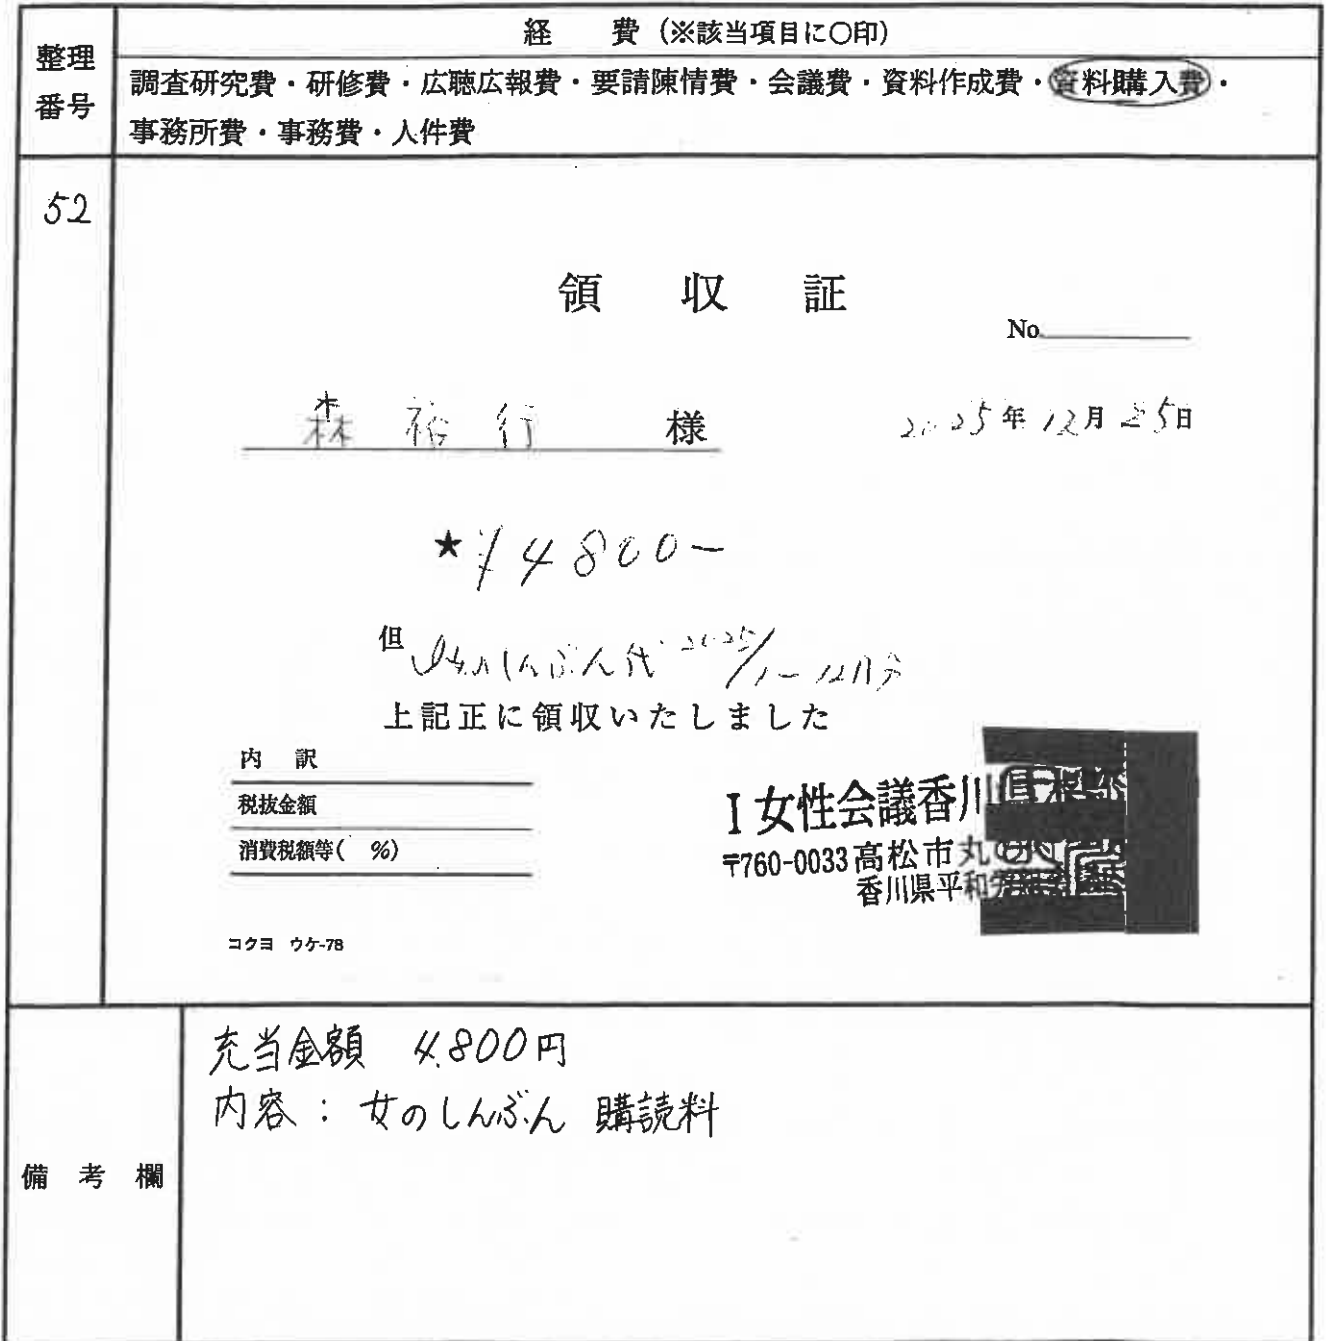 整理番号
経 費（※該当項目に○印）
調査研究費・研修費・広聴広報費・要請陳情費・会議費・資料作成費・資料購入費・
事務所費・事務費・人件費
52
領 収 証
No.
森 裕 行 様
2025年12月25日
★¥4800-
但 女のしんぶん代 2025/1~12月分
上記正に領収いたしました
内 訳
税抜金額
消費税額等( %)
I女性会議香川
〒760-0033 高松市丸の
香川県平和
コクヨ ウケ-78
備 考 欄
充当金額 4,800円
内容：女のしんぶん 購読料